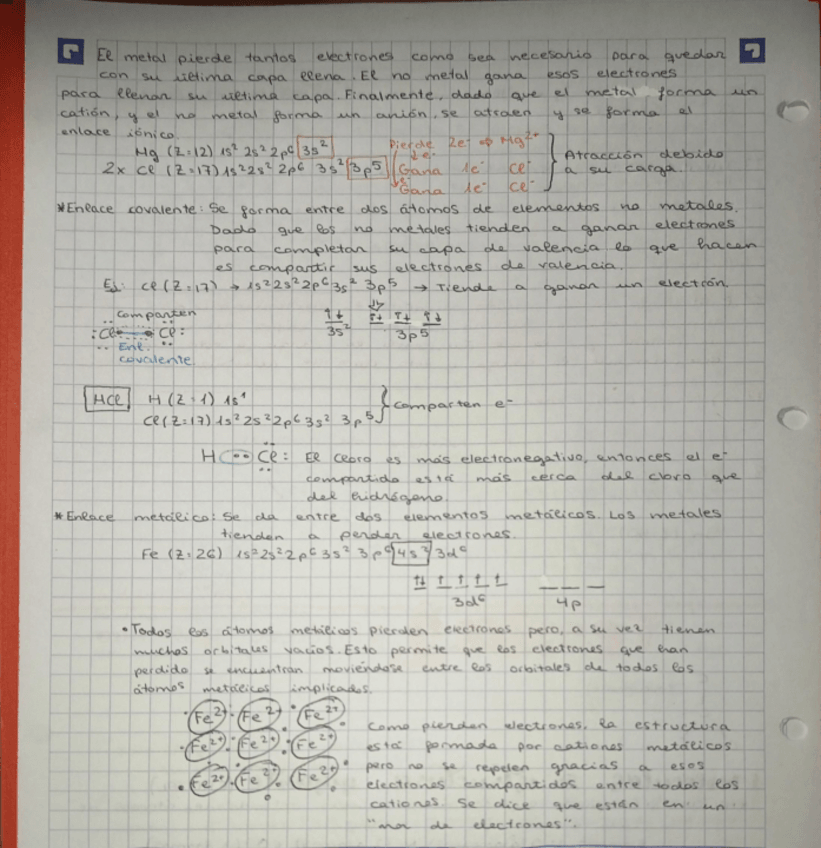 El metal pierde tantos electrones como sea necesario para quedar
con su última capa llena. El no metal gana esos electrones
para llenar su última capa. Finalmente, dado que el metal forma un
catión, y el no metal forma un anión, se atraen y se forma el
enlace iónico.
Mg (Z=12) 1s² 2s² 2p⁶ 3s² Pierde 2e⁻ ⇒ Mg²⁺
2x Cl (Z=17) 1s² 2s² 2p⁶ 3s² 3p⁵ Gana 1e⁻ Cl⁻
Gana 1e⁻ Cl⁻
Atracción debido
a su carga.
*Enlace covalente: Se forma entre dos átomos de elementos no metales.
Dado que los no metales tienden a ganar electrones
para completar su capa de valencia lo que hacen
es compartir sus electrones de valencia.
Ej: Cl (Z=17) → 1s² 2s² 2p⁶ 3s² 3p⁵ → Tiende a ganar un electrón.
Comparten
:Cl Cl:
Enl.
covalente
3s² 3p⁵
HCl H (Z=1) 1s¹
Cl (Z=17) 1s² 2s² 2p⁶ 3s² 3p⁵ } comparten e⁻
H Cl: El cloro es más electronegativo, entonces el e⁻
compartido está más cerca del cloro que
del hidrógeno.
*Enlace metálico: Se da entre dos elementos metálicos. Los metales
tienden a perder electrones.
Fe (Z=26) 1s² 2s² 2p⁶ 3s² 3p⁶ 4s² 3d⁶
3d⁶ 4p
• Todos los átomos metálicos pierden electrones pero, a su vez tienen
muchos orbitales vacíos. Esto permite que los electrones que han
perdido se encuentran moviéndose entre los orbitales de todos los
átomos metálicos implicados.
Fe²⁺ Fe²⁺ Fe²⁺
Fe²⁺ Fe²⁺ Fe²⁺
Fe²⁺ Fe²⁺ Fe²⁺
Como pierden electrones, la estructura
está formada por cationes metálicos
pero no se repelen gracias a esos
electrones compartidos entre todos los
cationes. Se dice que están en un
"mar de electrones".